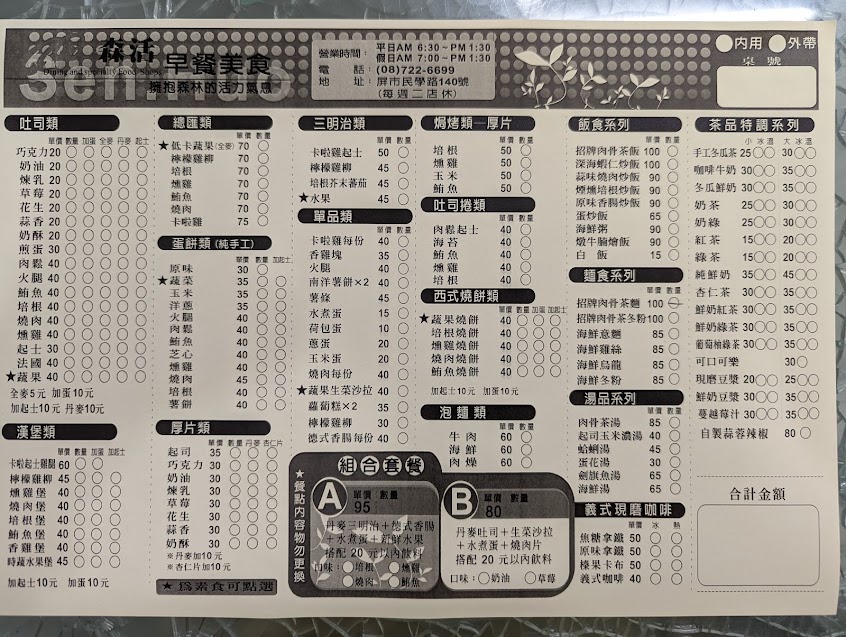 森活
早餐美食
Dining and specialty Food Shops
擁抱森林的活力氣息
營業時間：平日AM 6:30~PM 1:30
假日AM 7:00~PM 1:30
電 話：(08)722-6699
地 址：屏市民學路140號
(每週二店休)
內用 外帶
桌號
吐司類
單價 數量 加蛋 全麥 丹麥 起士
巧克力 20
奶油 20
煉乳 20
草莓 20
花生 20
蒜香 20
奶酥 20
煎蛋 30
肉鬆 40
火腿 40
鮪魚 40
培根 40
燒肉 40
燻雞 40
起士 30
法國 40
★蔬果 40
全麥5元 加蛋10元
加起士10元 丹麥10元
漢堡類
單價 數量 加蛋 加起士
卡啦起士雞腿 60
檸檬雞柳 45
燻雞堡 40
燒肉堡 40
培根堡 40
鮪魚堡 40
香雞堡 40
時蔬水果堡 45
加起士10元 加蛋10元
總匯類
單價 數量
★低卡蔬果(全麥) 70
檸檬雞柳 70
培根 70
燻雞 70
鮪魚 70
燒肉 70
卡啦雞 75
蛋餅類(純手工)
單價 數量 加起士
原味 30
★蔬菜 35
玉米 35
洋蔥 35
火腿 40
肉鬆 40
鮪魚 40
芝心 40
燻雞 40
燒肉 45
培根 40
薯餅 40
厚片類
單價 數量 丹麥 杏仁片
起司 35
巧克力 30
奶油 30
煉乳 30
草莓 30
花生 30
蒜香 30
奶酥 30
※丹麥加10元
※杏仁片加10元
★為素食可點選
三明治類
單價 數量
卡啦雞起士 50
檸檬雞柳 50
培根芥末蕃茄 45
★水果 45
單品類
單價 數量
卡啦雞每份 40
香雞塊 35
火腿 40
南洋薯餅×2 40
薯條 45
水煮蛋 15
荷包蛋 10
蔥蛋 20
玉米蛋 20
燒肉每份 40
★蔬果生菜沙拉 40
蘿蔔糕×2 35
檸檬雞柳 30
德式香腸每份 40
焗烤類—厚片
單價 數量
培根 50
燻雞 50
玉米 50
鮪魚 50
吐司捲類
單價 數量
肉鬆起士 40
海苔 40
鮪魚 40
燻雞 40
培根 40
西式燒餅類
單價 數量 加蛋 加起士
★蔬果燒餅 40
培根燒餅 40
燻雞燒餅 40
燒肉燒餅 40
鮪魚燒餅 40
加起士10元 加蛋10元
泡麵類
單價 數量
牛肉 60
海鮮 60
肉燥 60
組合套餐
★餐點內容物勿更換
A
單價 數量
95
丹麥三明治＋德式香腸
＋水煮蛋＋新鮮水果
搭配20元以內飲料
口味：培根 燻雞
燒肉 鮪魚
B
單價 數量
80
丹麥吐司＋生菜沙拉
＋水煮蛋＋燒肉片
搭配20元以內飲料
口味：奶油 草莓
飯食系列
單價 數量
招牌肉骨茶飯 100
深海蝦仁炒飯 100
蒜味燒肉炒飯 90
煙燻培根炒飯 90
原味香腸炒飯 90
蛋炒飯 65
海鮮粥 90
燉牛腩燴飯 90
白飯 15
麵食系列
單價 數量
招牌肉骨茶麵 100
招牌肉骨茶冬粉 100
海鮮意麵 85
海鮮雞絲 85
海鮮烏龍 85
海鮮冬粉 85
湯品系列
單價 數量
肉骨茶湯 85
起司玉米濃湯 40
蛤蜊湯 45
蛋花湯 30
劍旗魚湯 65
海鮮湯 65
義式現磨咖啡
單價 冰 熱
焦糖拿鐵 50
原味拿鐵 50
榛果卡布 50
義式咖啡 40
茶品特調系列
小 冰 溫 大 冰 溫
手工冬瓜茶 25 30
咖啡牛奶 30 35
冬瓜鮮奶 30 35
奶茶 25 30
奶綠 25 30
紅茶 15 20
綠茶 15 20
純鮮奶 35 45
杏仁茶 30 35
鮮奶紅茶 30 35
鮮奶綠茶 30 35
葡萄柚綠茶 30 35
可口可樂 30
現磨豆漿 20 25
鮮奶豆漿 30 35
蔓越莓汁 30 35
自製蒜蓉辣椒 80
合計金額